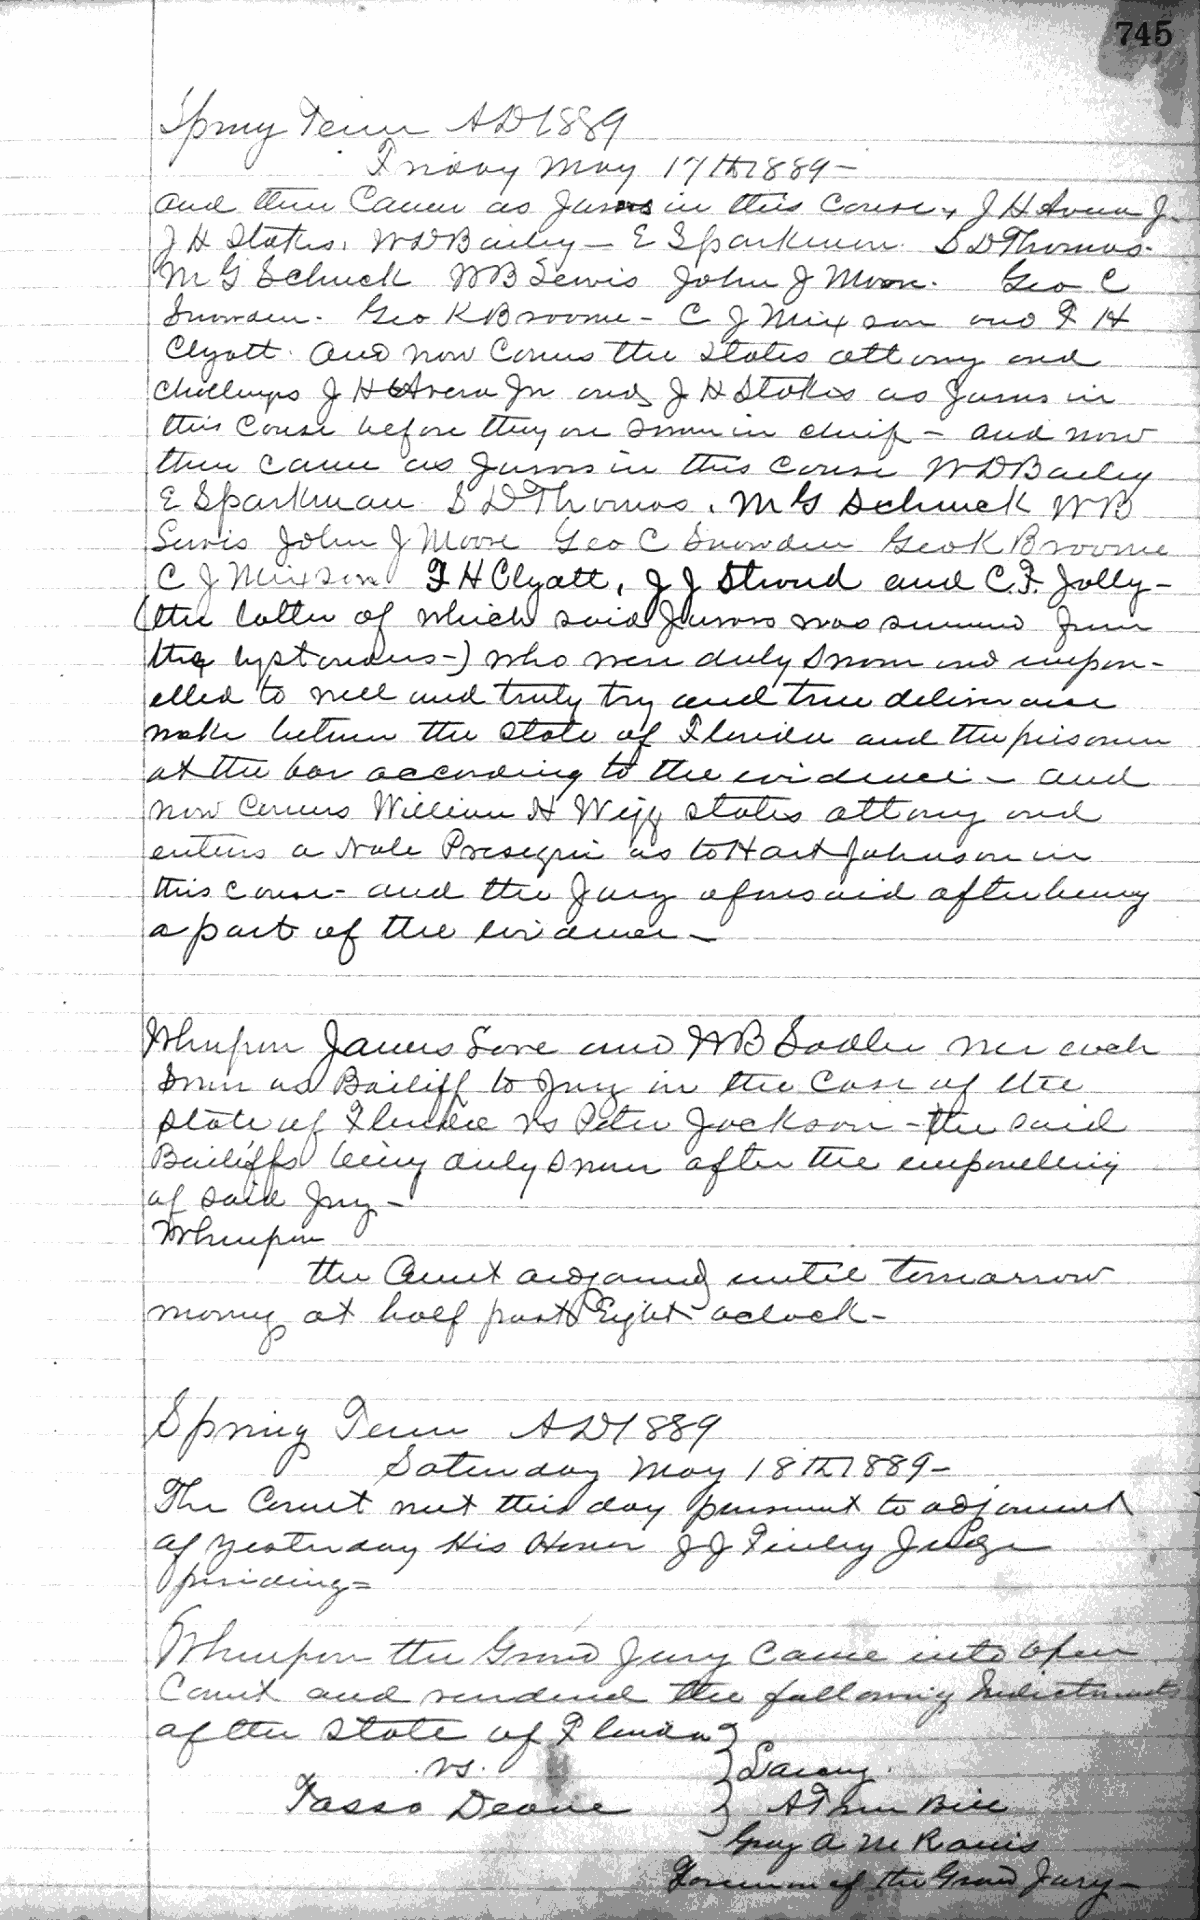 745
Spring Term AD 1889
Friday May 17th 1889-
and then Came as Jurors in this Cause, J H Avera Jr
J H Stokes, W D Bailey - E Sparkman. S D Thomas.
M G Schuck W B Lewis John J Moore. Geo C
Snowden. Geo K Broome - C J Mixson and F H
Clyatt. And now Comes the States attorny and
Challenges J H Avera Jr and J H Stokes as Jurors in
this Cause before they are sworn in chief - and now
then came as Jurors in this cause W D Bailey
E Sparkman S D Thomas, M G Schuck W B
Lewis John J Moore Geo C Snowden Geo K Broome
C J Mixson F H Clyatt, J J Stroud and C. F. Jolly-
(the latter of which said Jurors was summoned from
the bystanders-) who were duly sworn and impan-
elled to well and truly try and true deliverance
make between the State of Florida and the prisoner
at the bar according to the evidence - and
now Comes William H Wigg States attorny and
enters a Nole Prosequi as to Hart Johnson in
this cause - and the Jury aforesaid after hearing
a part of the evidence -
Whereupon James Love and W B Sadler were each
sworn as Bailiff to Jury in the Case of the
State of Florida vs Peter Jackson - the said
Bailiffs being duly sworn after the empanelling
of said Jury -
Whereupon
the Court adjourned until tomorrow
morning at half past Eight oclock -
Spring Term AD 1889
Saturday May 18th 1889-
The Court met this day pursuant to adjournment
of yesterday His Honor J J Finley Judge
presiding =
Whereupon the Grand Jury Came into Open
Court and rendered the following Indictments
of the State of Florida
vs.
Larceny.
Tasso Deane
A True Bill
Foreman of the Grand Jury -